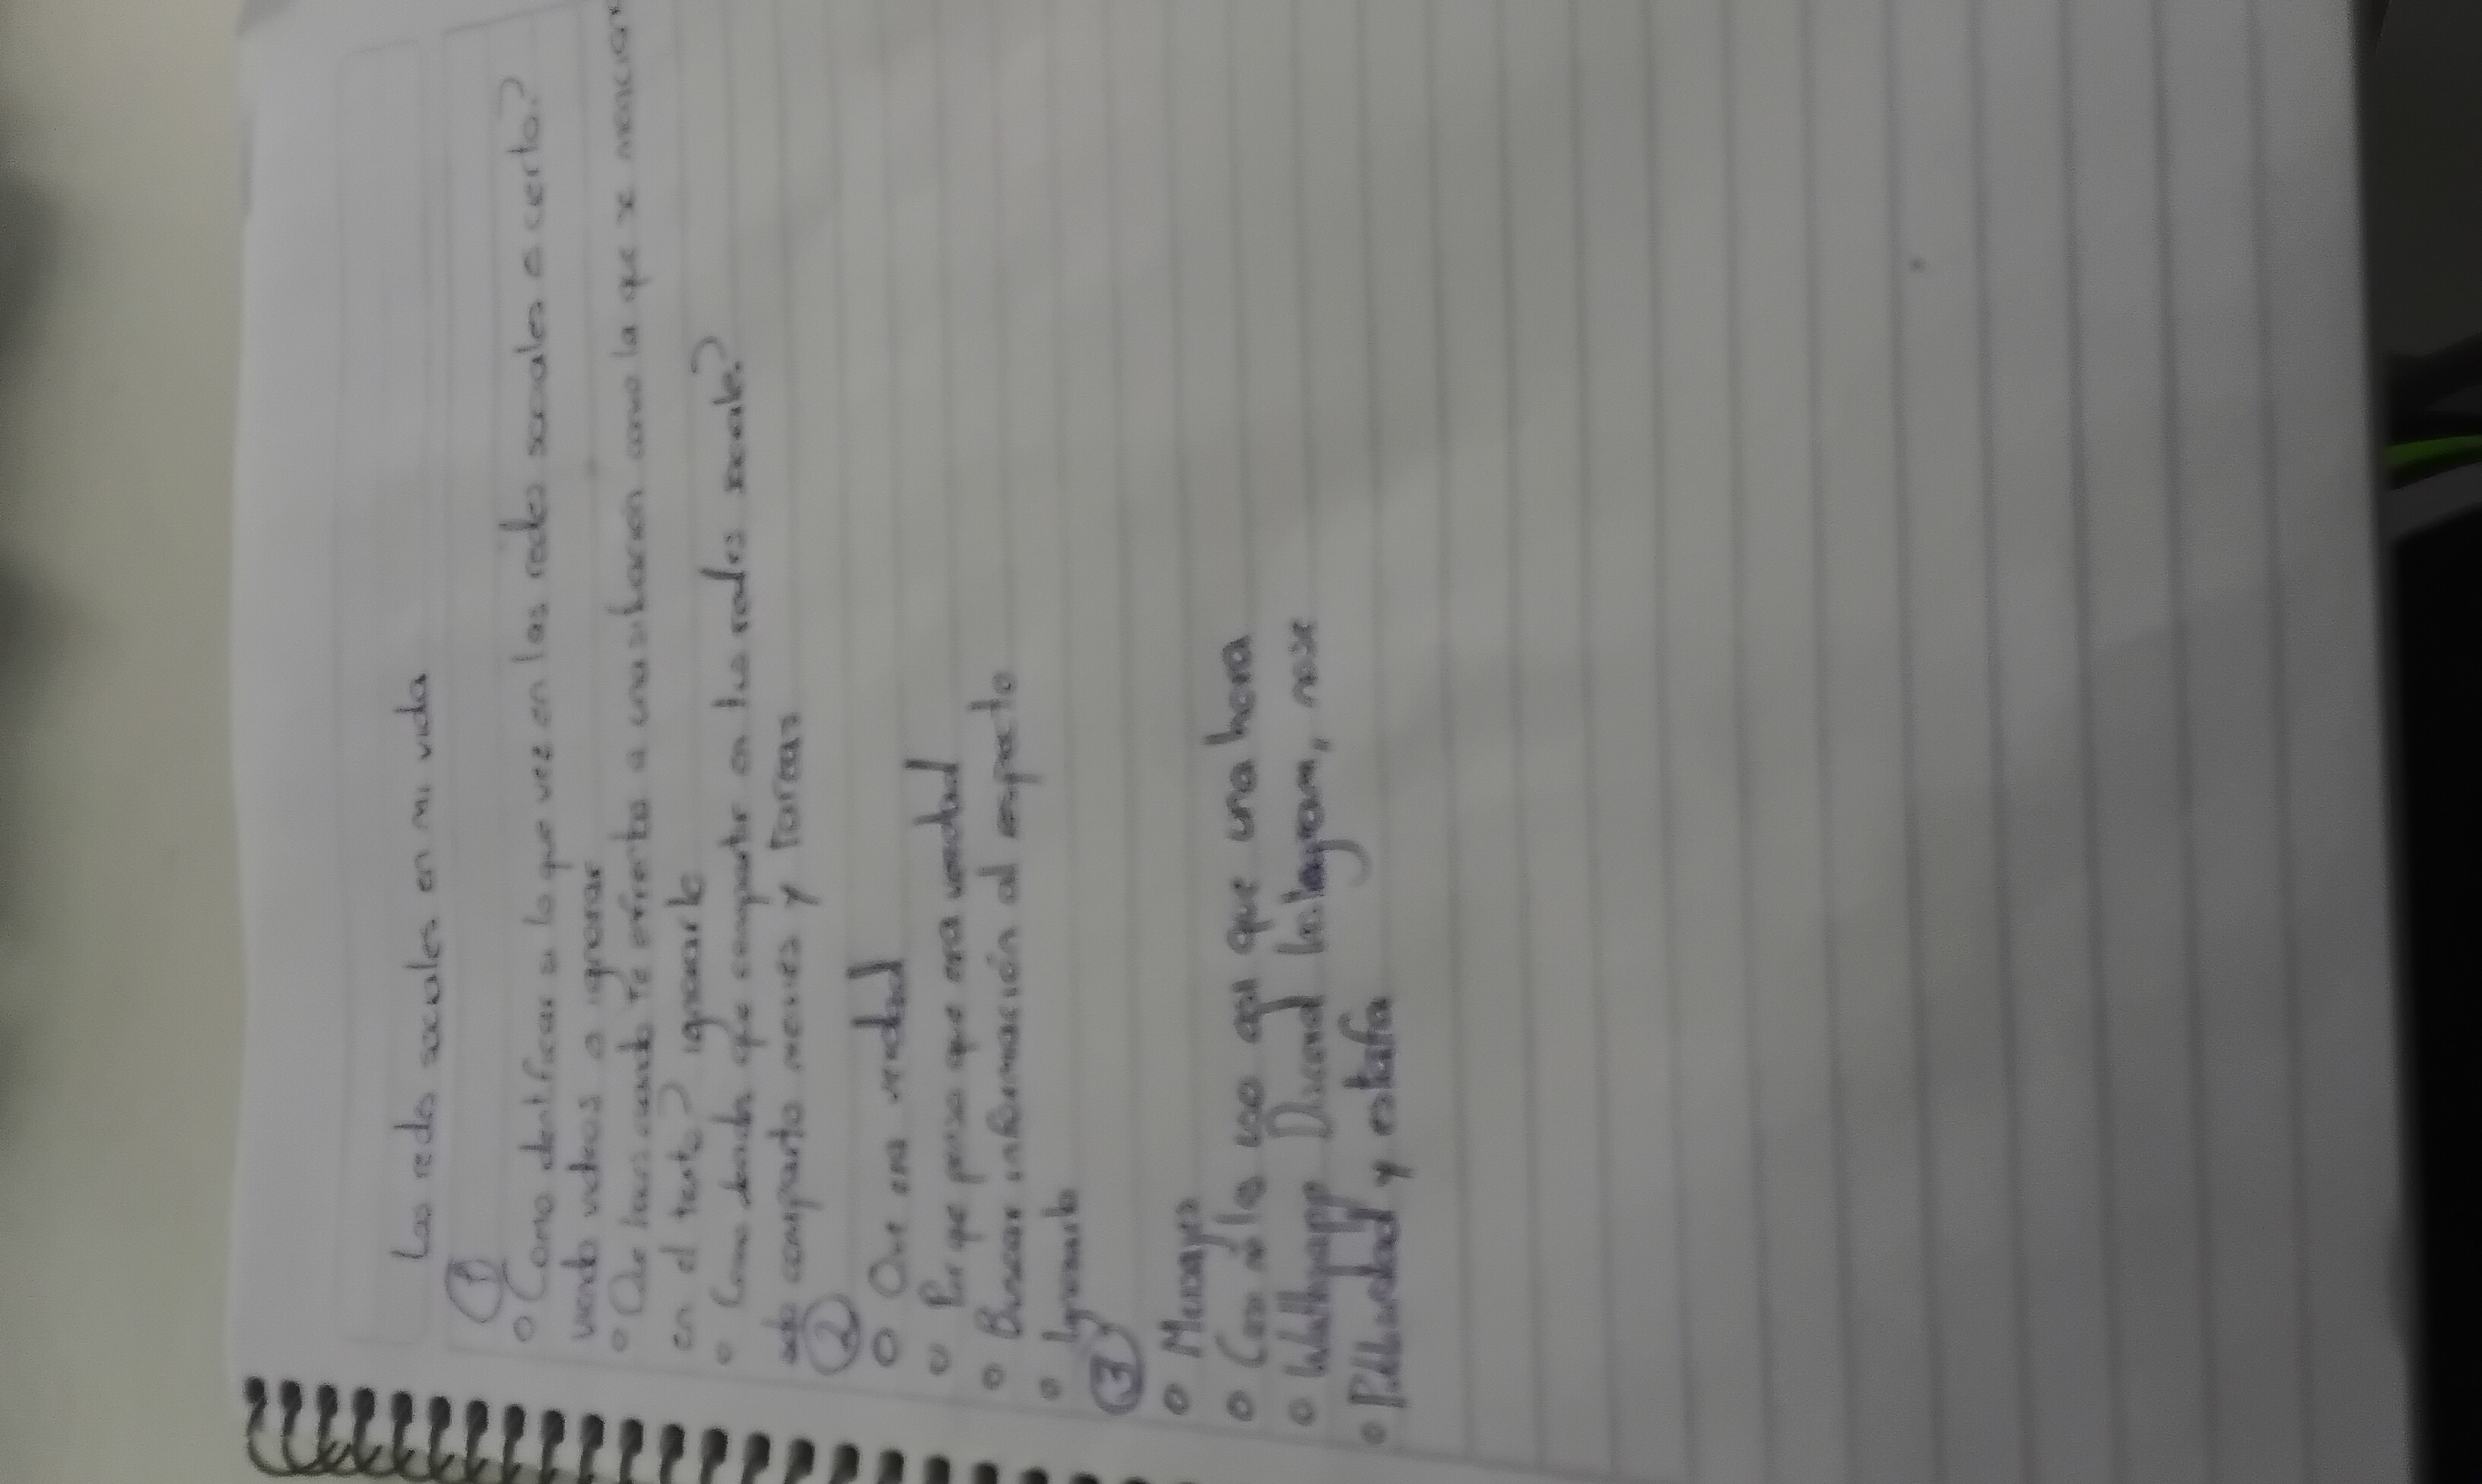 Las redes sociales en mi vida
①
Como identificar si lo que vez en las redes sociales es cierto?
viendo videos o ignorar
Que haces cuando te enfrentas a una situacion como la que se mencion
en el texto? ignorarlo
Como decidir que compartir en tus redes sociale?
solo comparto memes y tareas
②
Que era verdad
Por que pienso que era verdad
Buscar información al respecto
Ignorarlo
③
Mensajes
Casi no las uso que una hora
Whathsapp Discord Instagram, nose
Publicidad y estafa